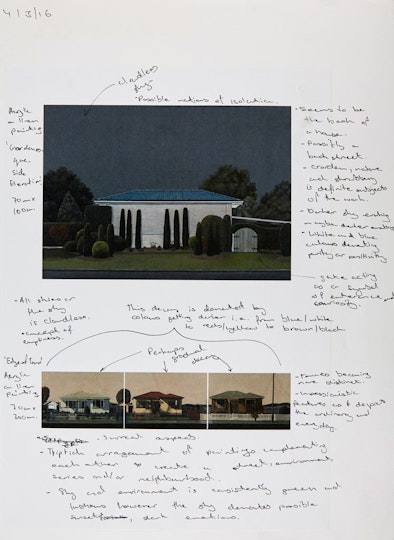 4/3/16
cloudless
sky
- Possible notions of isolation.
Acrylic
on linen
painting
'Gardeners
Side
Elevation'
70cm x
100cm.
- Seems to be
the back of
a house.
- Possibly a
back street
- Garden, nature
and shrubbery
is definite subjects
of the work.
- Darker sky ending
- White and blue
colours denoting
purity or
- gate acting
as a
of entrance and
curiosity.
- All skies or
the sky
is cloudless.
- Concept of
emptiness.
This decay is denoted by
colours getting darker i.e. from blue/white
to reds/yellow to brown/black
Perhaps gradual
decay
Acrylic
on linen
painting
70cm x
300cm.
- Fences becoming
more distinct.
- Impressionistic
features as it depicts
the ordinary and
everyday.
- Surreal aspects
- Triptich arrangement of paintings complementing
each other to create a street, environment,
series and/or neighbourhood.
- Sky and environment is consistently greens and
browns however the sky denotes possible
sunset, dark emotions.